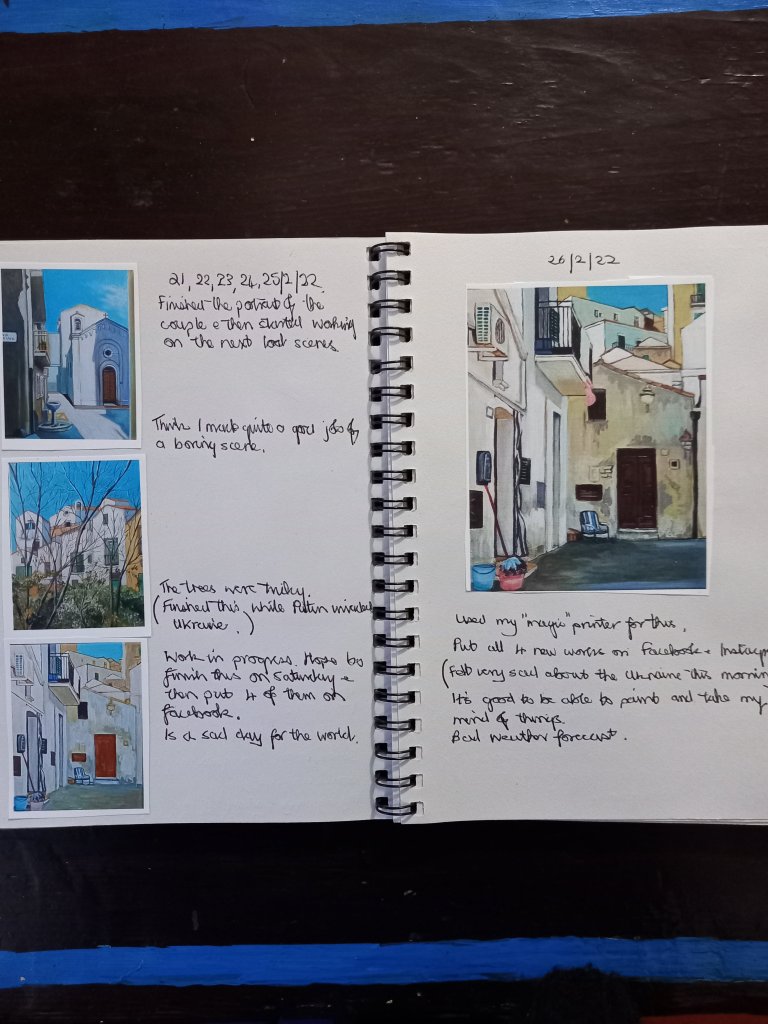 21, 22, 23, 24, 25/2/22.
Finished the portrait of the
couple & then started working
on the next local scenes.
Think I made quite a good job of
a boring scene.
The trees were tricky.
(Finished this, while Putin invaded
Ukraine.)
Work in progress. Hope to
finish this on Saturday &
then put 4 of them on
facebook.
Is a sad day for the world.
26/2/22
Used my "magic" printer for this.
Put all 4 new works on Facebook + Instagr
(Felt very sad about the Ukraine this mornin
It's good to be able to paint and take my
mind of things.
Bad weather forecast.